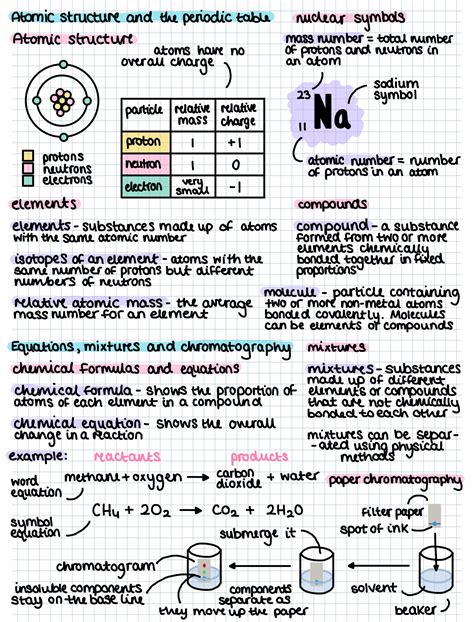 Atomic structure and the periodic table
Atomic structure
atoms have no
overall charge
protons
neutrons
electrons
particle relative mass relative charge
proton 1 +1
neutron 1 0
electron very small -1
nuclear symbols
mass number = total number
of protons and neutrons in
an atom
23
11
Na
sodium
symbol
atomic number = number
of protons in an atom
elements
elements - substances made up of atoms
with the same atomic number
isotopes of an element - atoms with the
same number of protons but different
numbers of neutrons
relative atomic mass - the average
mass number for an element
compounds
compound - a substance
formed from two or more
elements chemically
bonded together in fixed
proportions
molecule - particle containing
two or more non-metal atoms
bonded covalently. Molecules
can be elements or compounds
Equations, mixtures and chromatography
chemical formulas and equations
chemical formula - shows the proportion of
atoms of each element in a compound
chemical equation - shows the overall
change in a reaction
example: reactants products
word
equation
methane + oxygen → carbon dioxide + water
symbol
equation
CH4 + 2O2 → CO2 + 2H2O
mixtures
mixtures - substances
made up of different
elements or compounds
that are not chemically
bonded to each other
mixtures can be separ-
ated using physical
methods
paper chromatography
filter paper
spot of ink
solvent
beaker
submerge it
components
separate as
they move up the paper
chromatogram
insoluble components
stay on the base line